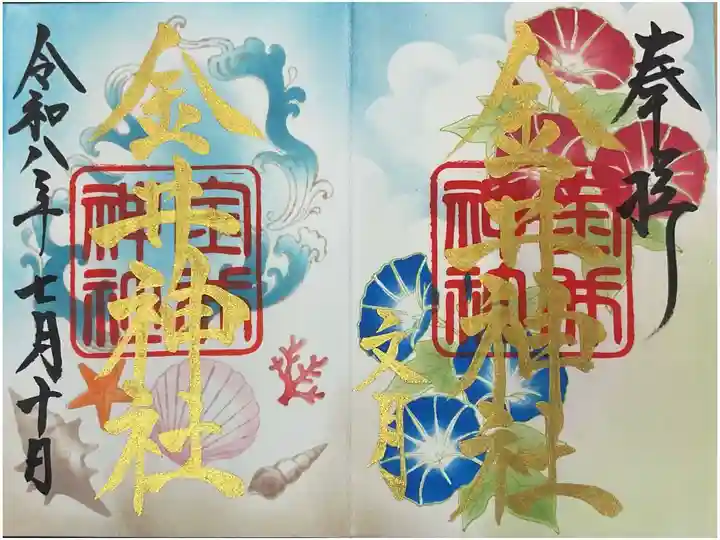 奉拝
金井神社
文月
金井神社
令和八年七月十日
金井神社
金井神社